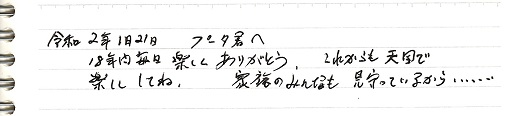 令和2年1月21日 フータ君へ
18年間毎日楽しくありがとう。これからも天国で
楽しくしてね。 家族のみんなも見守っているから……